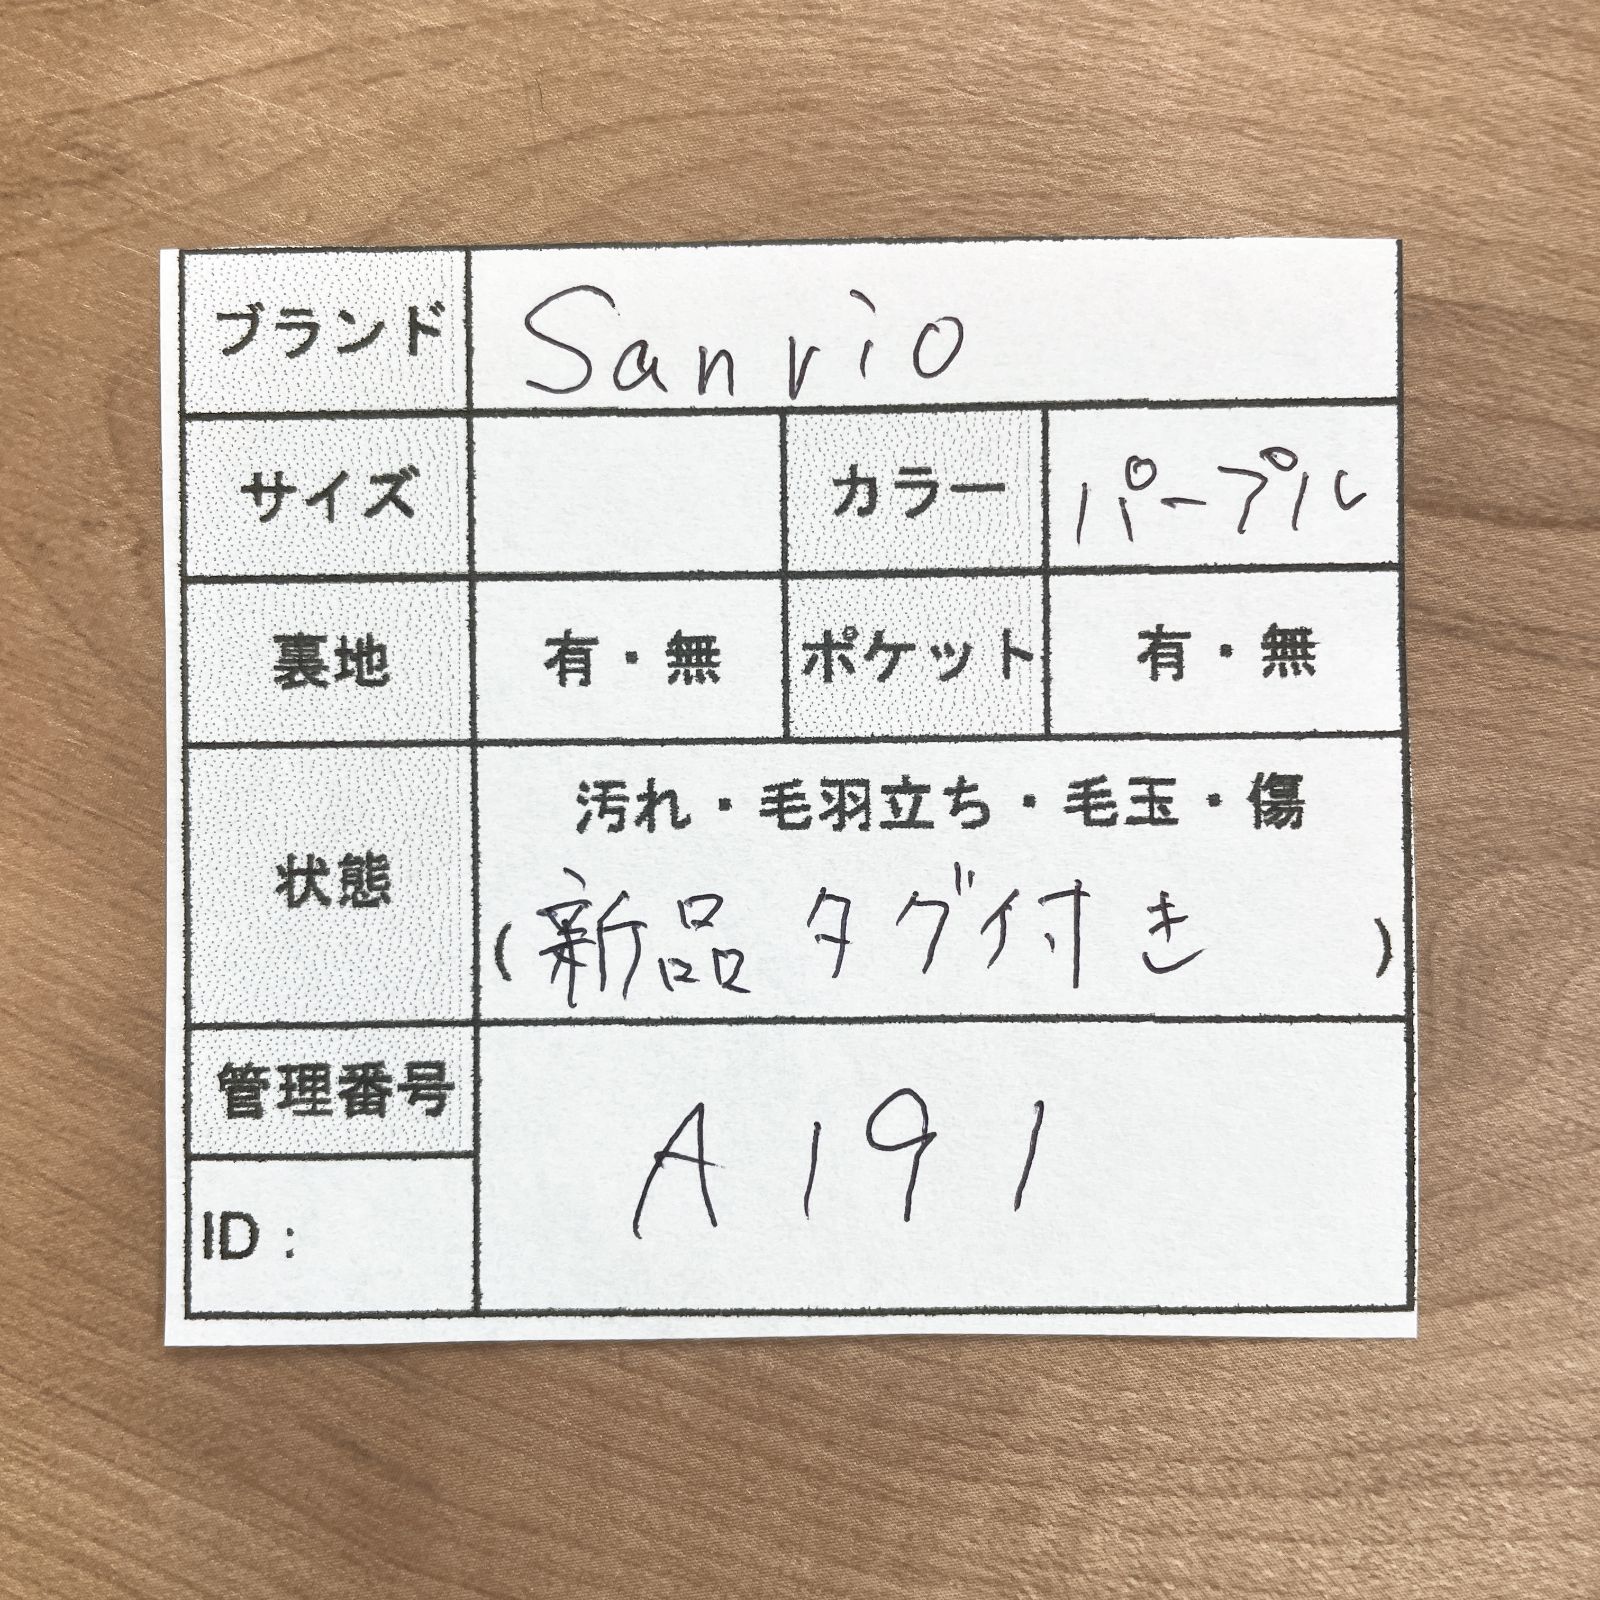 ブランド Sanrio
サイズ カラー パープル
裏地 有・無 ポケット 有・無
汚れ・毛羽立ち・毛玉・傷
状態
(新品タグ付き)
管理番号
A191
ID：